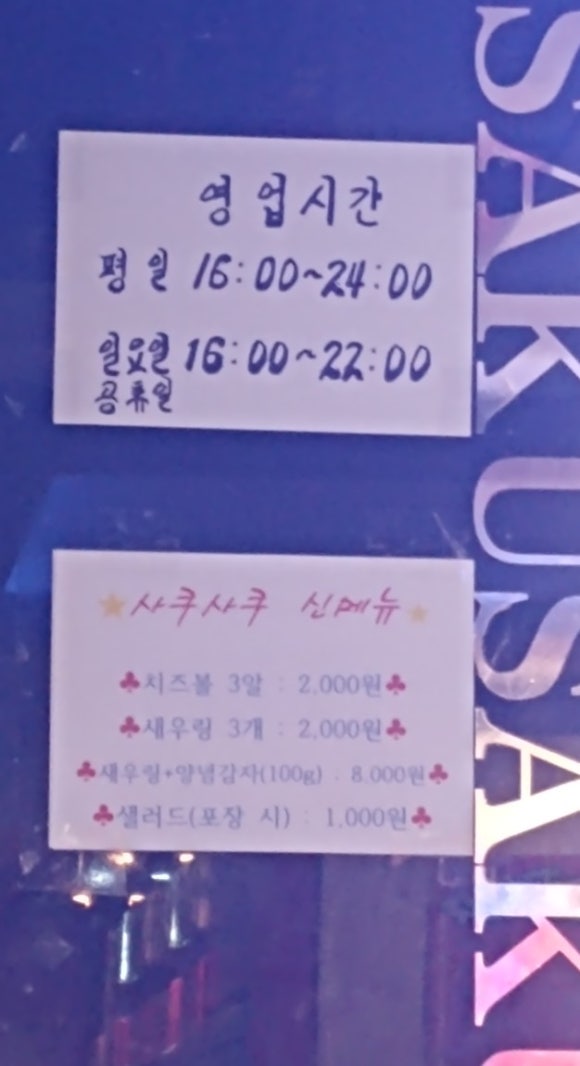 영업시간
평일 16:00~24:00
일요일 16:00~22:00
공휴일
사쿠사쿠 신메뉴
치즈볼 3알 : 2,000원
새우링 3개 : 2,000원
새우링+양념감자(100g) : 8,000원
샐러드(포장 시) : 1,000원
SAKUSAKU